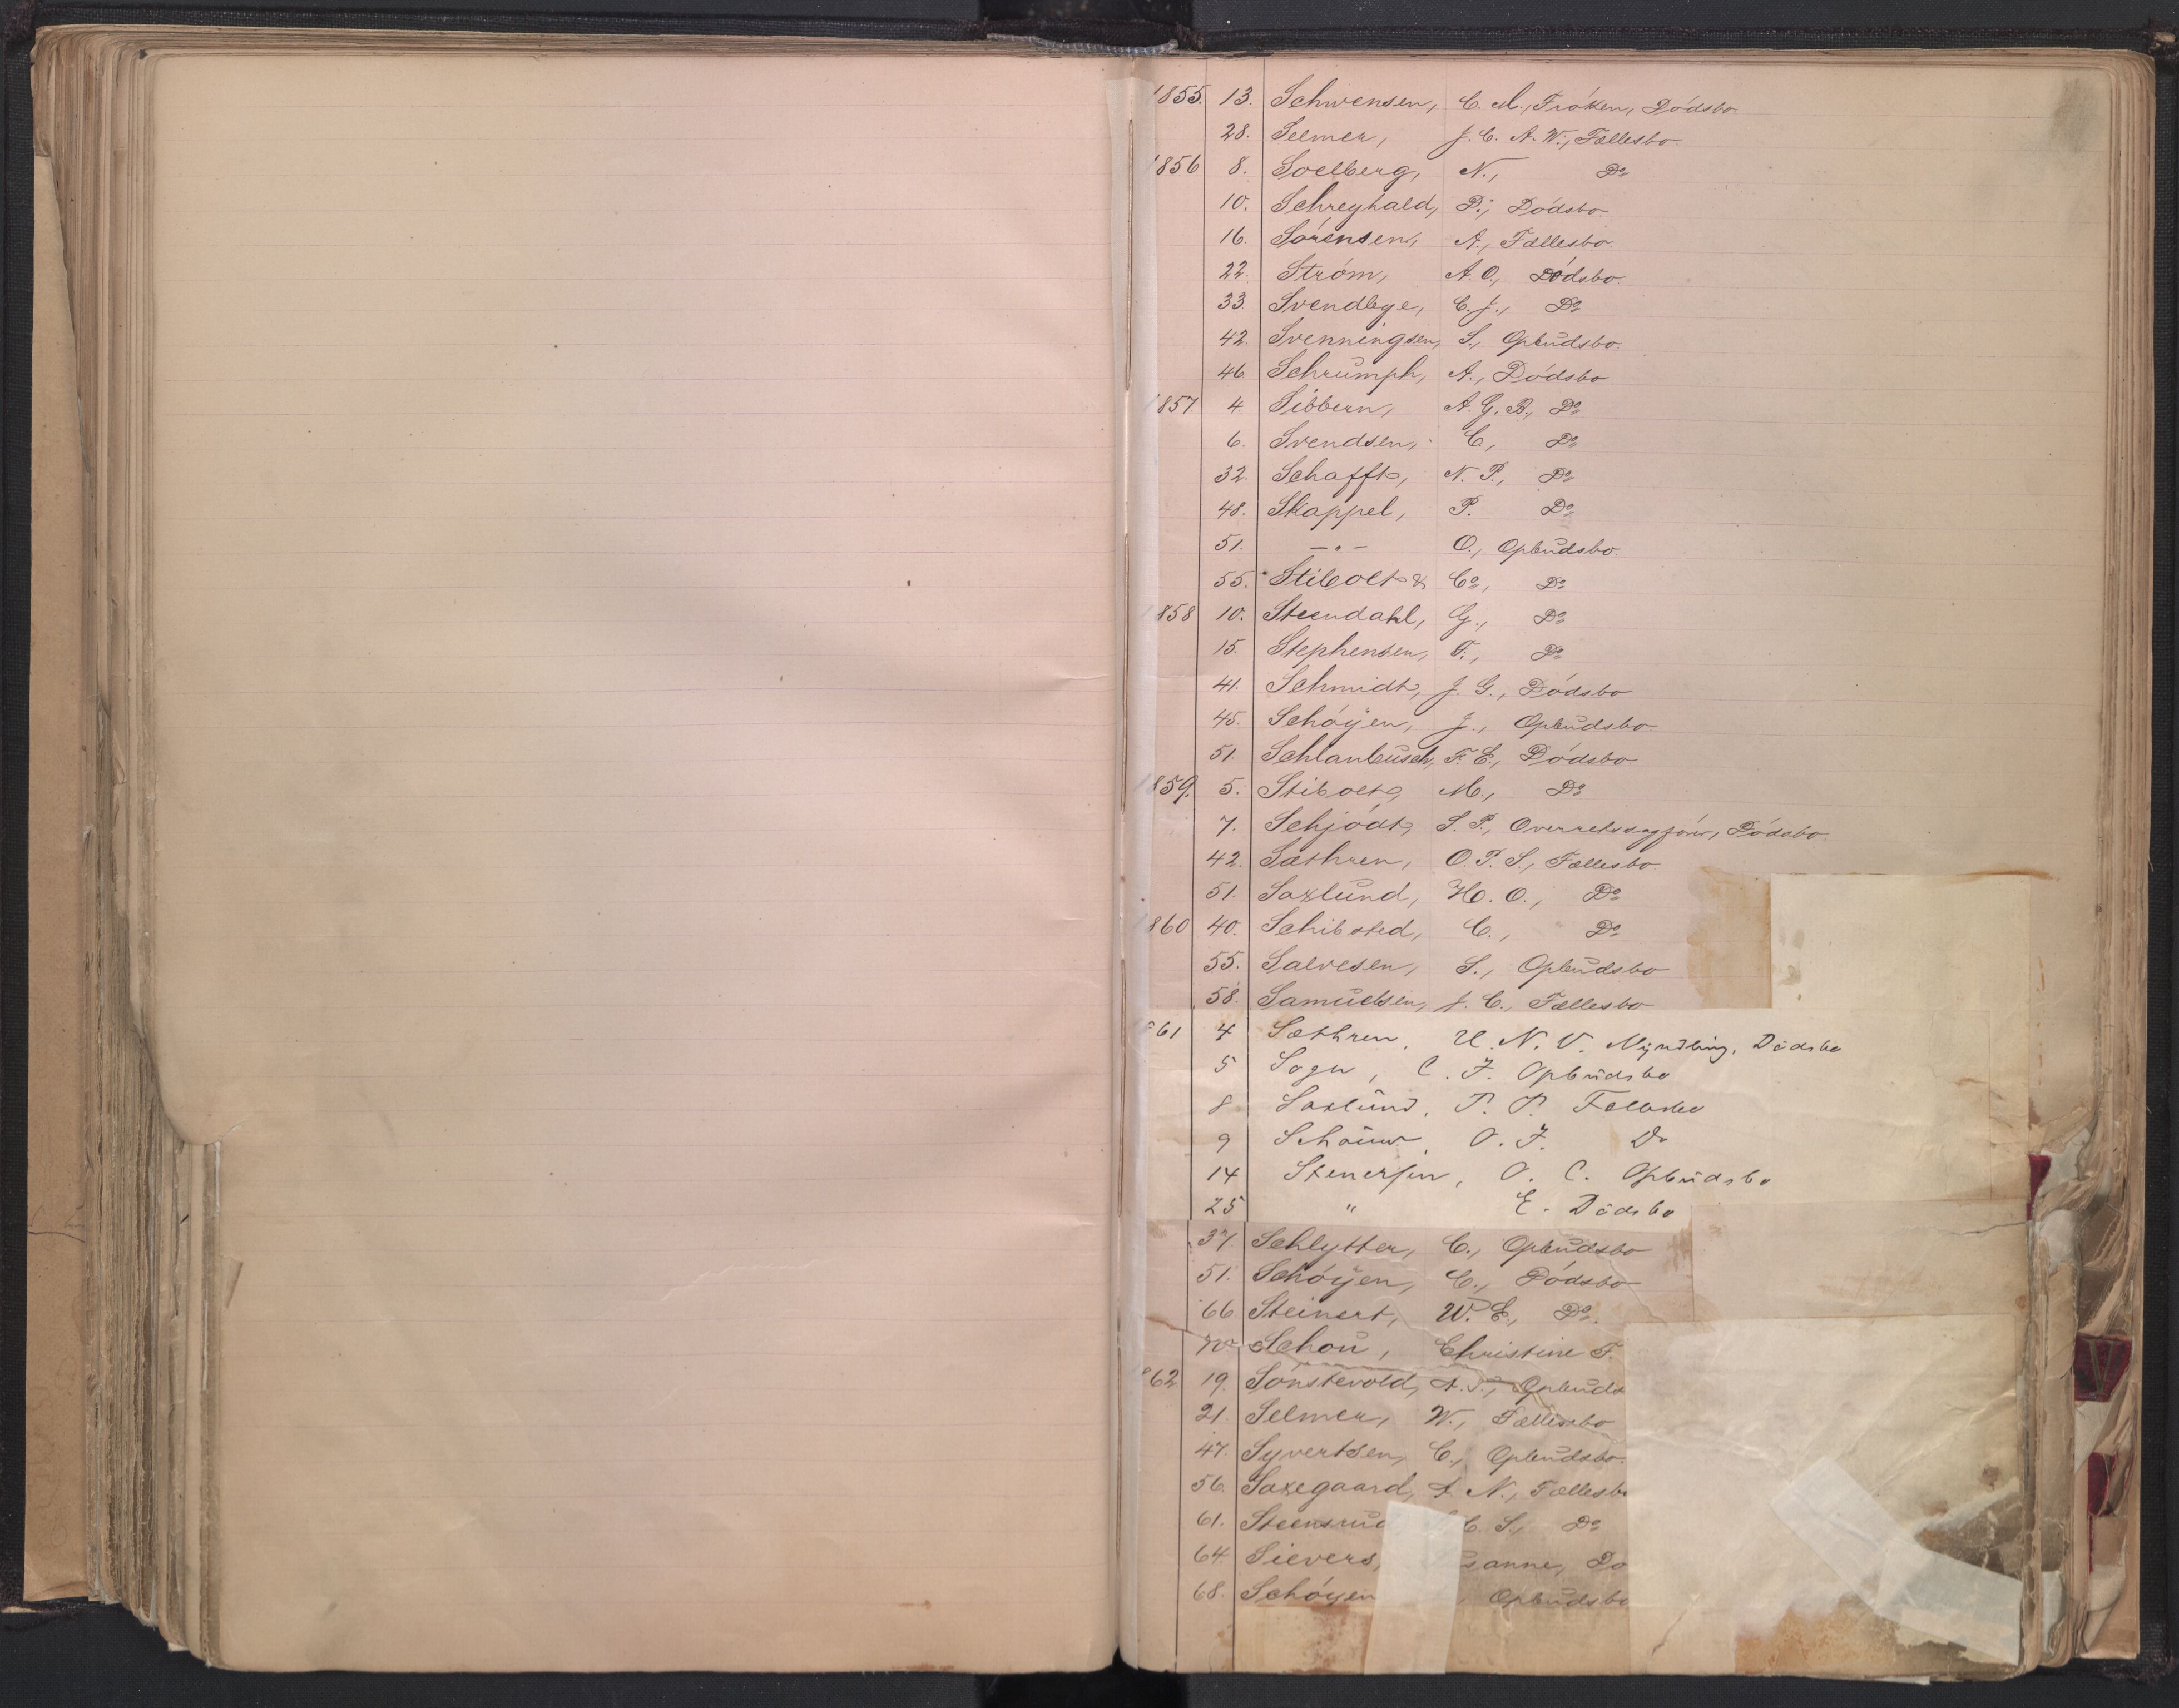 1855. 13. Schwensen, C. M., Fröken, Dödsbo
28. Selmer, J. C. A. W., Fællesbo.
1856 8. Soelberg, N., Do
10. Schreyhald, P., Dödsbo.
16. Sörensen, A., Fællesbo.
22. Ström, A. O., Dödsbo.
33. Svendbye, C. J., Do
42. Svenningsen, S., Opbudsbo.
46. Schrumph, A., Dödsbo
1857. 4. Sibbern, A. G. B., Do
6. Svendsen, C., Do
32. Schafft, N. P., Do
48. Skappel, P. Do
51. —"— O., Opbudsbo.
55. Stibolt & Co, Do
1858 10. Steendahl, G., Do
15. Stephensen, F., Do
41. Schmidt, J. G., Dödsbo
45. Schöyen, J., Opbudsbo
51. Schlanbusch, F. E., Dödsbo
1859. 5. Stibolt, M., Do
7. Schjödt, S. P., Overretssagförer, Dödsbo.
42. Sæthren, O. P. S., Fællesbo.
51. Saxlund, H. O., Do
1860 40. Schibsted, C., Do
55. Salvesen, S., Opbudsbo
58. Samuelsen, J. C., Fællesbo
861 4 Sæthren, U. N. V. Myndling, Dödsbo
5 Sogn, C. J. Opbudsbo
8 Saxlund, P. P. Fællesbo
9 Schouw, O. J. Do
14 Stenersen, O. C. Opbudsbo
25 " E. Dödsbo
37. Schlytter, C., Opbudsbo
51. Schöyen, C., Dödsbo
66 Steinert, W. E., Do.
70 Schou, Christine F.
862 19. Sonstevold, A. S., Opbuds
21. Selmer, W., Fællesbo
47. Syvertsen, C., Opbudsbo.
56. Saxegaard, A. N., Fællesb
61. Steensrud C. S., Do
64. Sievers, sanne, Do
68. Schöyen , Opbudsbo